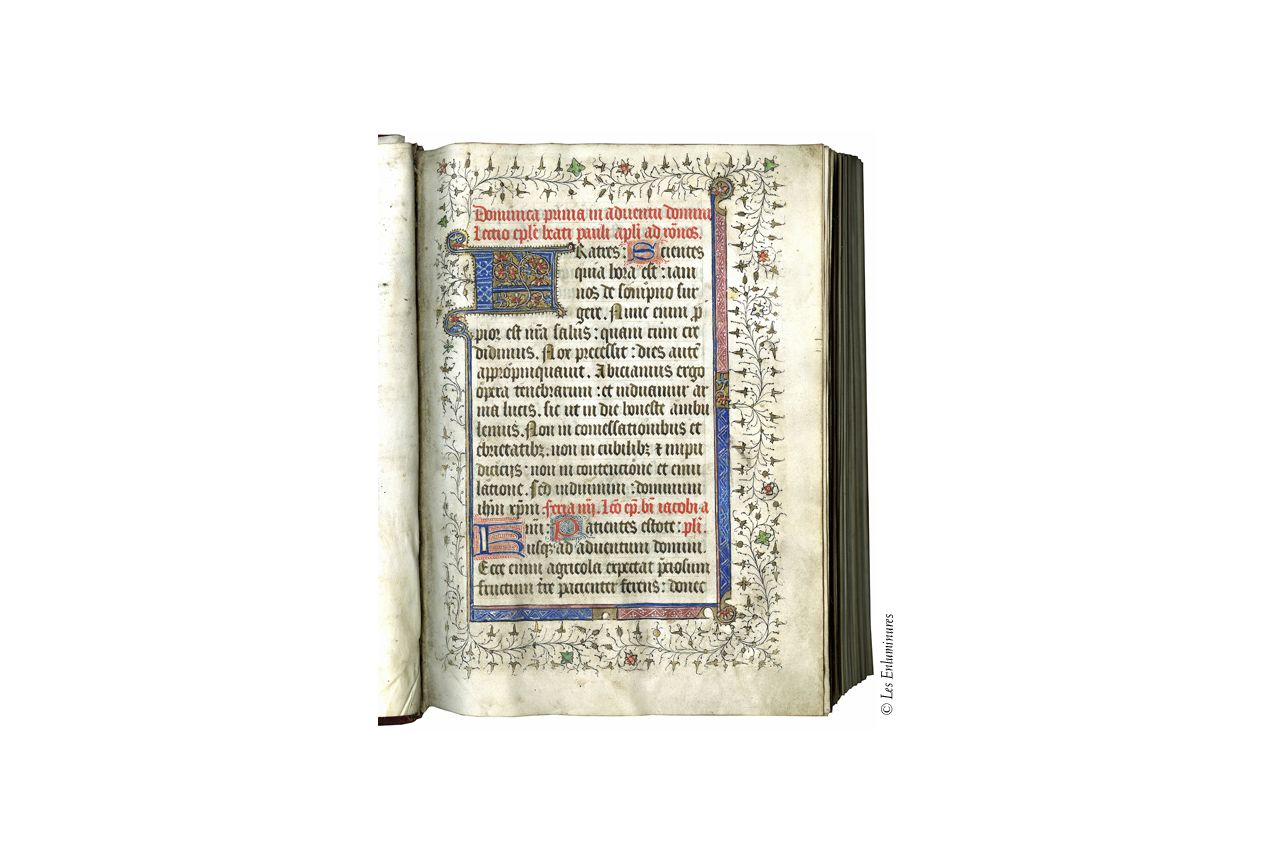 Dominica prima in aduentu domini
Lectio ep̄le beati pauli apl̄i ad rōnos.
FRatres: Scientes
quia hora est: iam
nos de sompno sur
gere. Nunc enim p̄
pior est nr̄a salus: quam cum cre
didimus. Nox precessit: dies autē
appropinquauit. Abiciamus ergo
opera tenebrarum: et induamur ar
ma lucis. sic ut in die honeste ambu
lemus. Non in comessationibus et
ebrietatibꝫ. non in cubilibꝫ ⁊ inpu
diciciis: non in contencione et emu
latione. Sed induimini: dominum
ihm̄ xp̄m feria iiii. lc̄o ep̄. bī iacobi a
mi: Patientes estote: pl̄i
husqꝫ ad aduentum domini
Ecce enim agricola expectat p̄ciosum
fructum tr̄re pacienter ferens: donec
© Les Enluminures